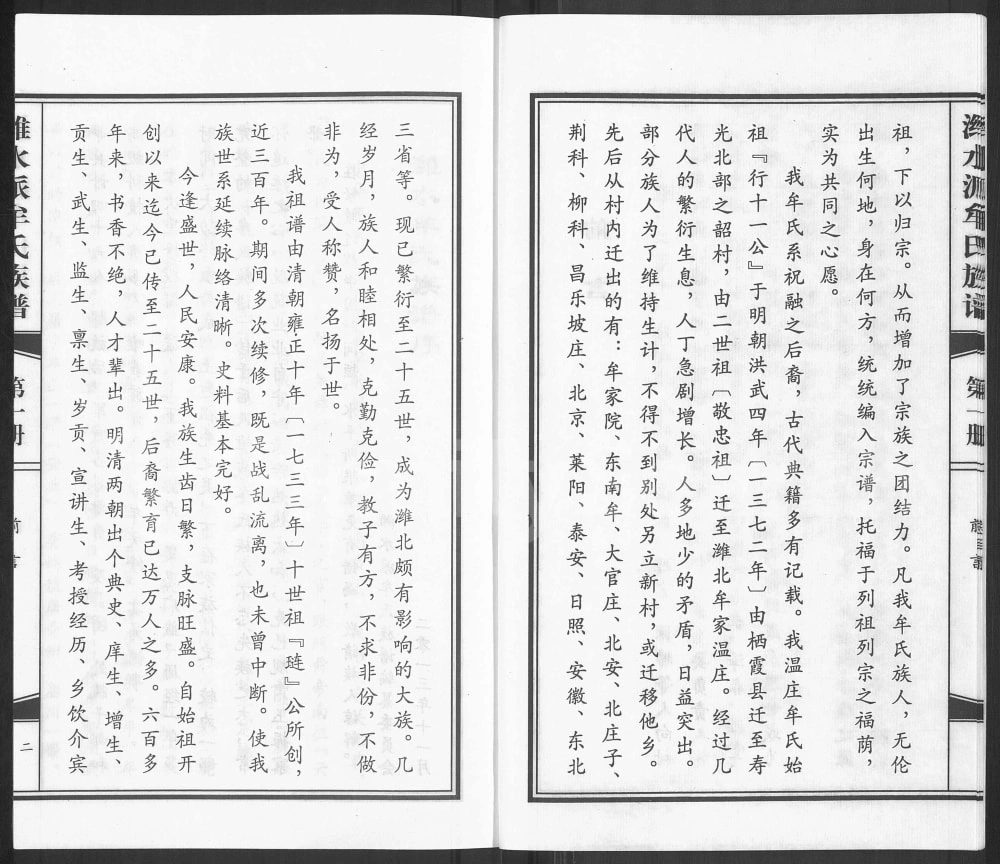 祖，下以归宗。从而增加了宗族之团结力。凡我牟氏族人，无伦
出生何地，身在何方，统统编入宗谱，托福于列祖列宗之福荫，
实为共同之心愿。
我牟氏系祝融之后裔，古代典籍多有记载。我温庄牟氏始
祖『行十一公』于明朝洪武四年〔一三七二年〕由栖霞县迁至寿
光北部之韶村，由二世祖〔敬忠祖〕迁至潍北牟家温庄。经过几
代人的繁衍生息，人丁急剧增长。人多地少的矛盾，日益突出。
部分族人为了维持生计，不得不到别处另立新村，或迁移他乡。
先后从村内迁出的有：牟家院、东南牟、大官庄、北安、北庄子、
荆科、柳科、昌乐坡庄、北京、莱阳、泰安、日照、安徽、东北
三省等。现已繁衍至二十五世，成为潍北颇有影响的大族。几
经岁月，族人和睦相处，克勤克俭，教子有方，不求非份，不做
非为，受人称赞，名扬于世。
我祖谱由清朝雍正十年〔一七三三年〕十世祖『琏』公所创，
近三百年。期间多次续修，既是战乱流离，也未曾中断。使我
族世系延续脉络清晰。史料基本完好。
今逢盛世，人民安康。我族生齿日繁，支脉旺盛。自始祖开
创以来迄今已传至二十五世，后裔繁育已达万人之多。六百多
年来，书香不绝，人才辈出。明清两朝出个典史、庠生、增生、
贡生、武生、监生、禀生、岁贡、宣讲生、考授经历、乡饮介宾
潍水派牟氏族谱
第一册
二